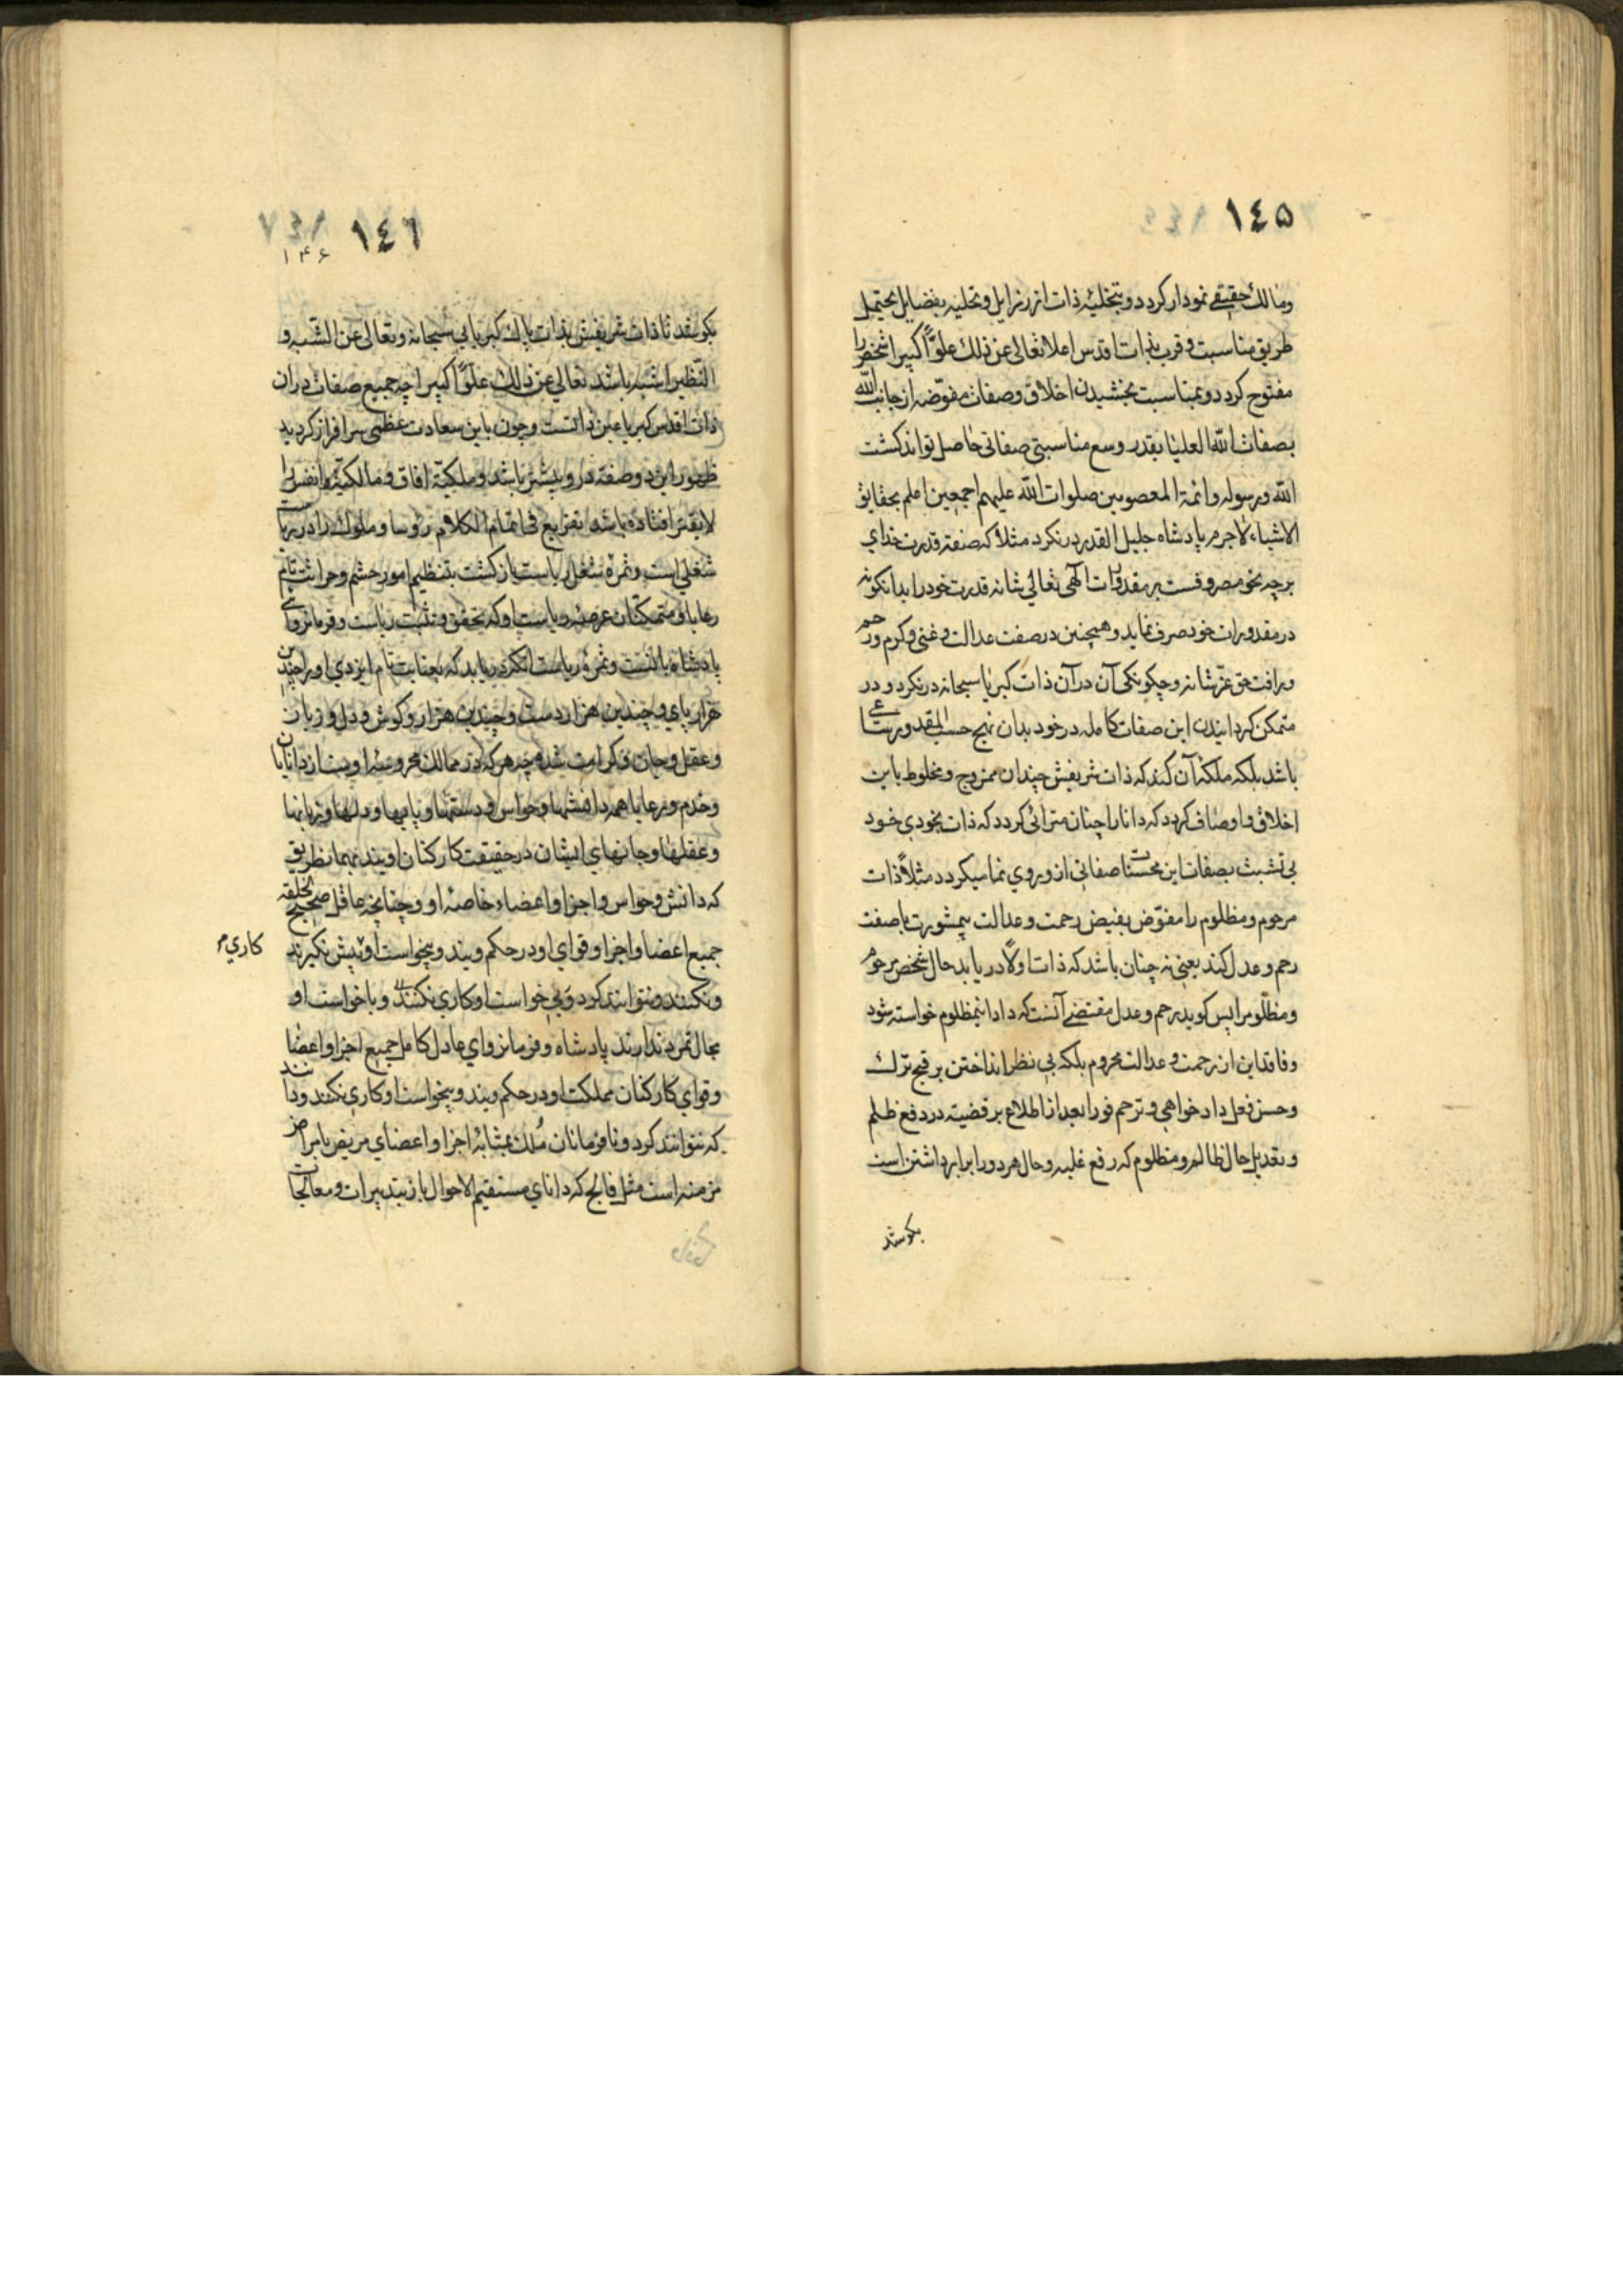 ١٤٥
ومالك حقیقی نمودار کردد و بتخلیهٔ ذات از رزایل و تحلیه بفضایل یحتمل
طریق مناسبت و قرب بذات اقدس اعلا تعالی عن ذلك علوًّا کبیرا شخص را
مفتوح کردد و بمناسبت بخشیدن اخلاق و صفات مفوّضه از جانب الله
بصفات الله العلیا بقدر وسع مناسبتی صفاتی حاصل تواند کشت
الله ورسوله وائمة المعصومین صلوات الله علیهم اجمعین اعلم بحقایق
الاشیاء لاجرم پادشاه جلیل القدر درنکرد مثلاً که صفة قدرت خدای
برچه نحو مصروفست بر مقدورات آلهی تعالی شانه قدرت خود را بدانکونه
در مقدورات خود صرف نماید و همچنین در صفت عدالت و غنی و کرم ورحم
ورافت حق عزّ شانه و چکونکی آن در آن ذات کبریا سبحانه درنکرد و در
متمکن کردانیدن این صفات کامله در خود بدان نهج حسب المقدور ساعی
باشد بلکه ملکهٔ آن کند که ذات شریفش چندان ممزوج و مخلوط باین
اخلاق و اوصاف کردد که دانا را چنان مترائی کردد که ذات بخودی خود
بی تشبث بصفات این محسنات صفاتی از و روی نما میکردد مثلاً ذات
مرحوم و مظلوم را مفوّض بفیض رحمت و عدالت بیمشورت با صفت
رحم و عدل کند یعنی نه چنان باشد که ذات اولاً دریابد حال شخص مرحوم
ومظلوم را پس کوید رحم و عدل مقتضی آنست که داد اینمظلوم خواسته شود
وفاقد این از رحمت و عدالت محروم بلکه بی نظر انداختن بر قبح ترك
وحسن فعل داد خواهی و ترحم فورا بعد از اطلاع بر قضیه در دفع ظلم
وتعدیل حال ظالم و مظلوم که رفع غلبه و حال هر دو را برابر داشتن است
بکوشد
١٤٦
۱۴۶
بکوشد تا ذات شریفش بذات پاك کبریایی سبحانه وتعالی عن الشبه و
النظیر اشبه باشد تعالی عن ذلك علوًّا کبیرا چه جمیع صفات در ان
ذات اقدس کبریا عین ذاتست و چون باین سعادت عظمی سرافراز کردید
ظهور این دو صفة در و بیشتر باشد و ملکیة افاق و مالکیة انفس را
لایقتر افتاده باشد تفزایع فی اتمام الکلام رؤسا و ملوك را در ریاست
شغلی است و ثمرهٔ شغل ریاست بازکشت بتنظیم امور حشم و حراثت تام
رعایا و متمکنان عرصهٔ ریاست او که تحقق و تثبت ریاست و فرمانروای
پادشاه بانست و ثمرهٔ ریاست انکه دریابد که بعنایت تام ایزدی او را چندین
هزار پای و چندین هزار دست و چندین هزار و کوش و دل و زبان
وعقل و جان و کرامت شده چه هرکه در ممالك محروسهٔ اوست از دانایان
وخدم و رعایا همه دانشها و حواس و دستها و پایها و دلها و زبانها
وعقلها و جانهای ایشان در حقیقت کارکنان اویند بهمانطریق
که دانش و حواس و اجزا و اعضاء خاصهٔ او و چنانچه عاقل صحیح الخلقه
جمیع اعضا و اجزا و قوای او در حکم ویند و بیخواست او پیش نکیرند
کاری
ونکنند و نتوانند کرد و بی خواست او کاری نکنند و با خواست او
مجال تمرد ندارند پادشاه و فرمانروای عادل کامل جمیع اجزا و اعضا
وقوای کارکنان مملکت او در حکم ویند و بیخواست او کاری نکنند و دانند
که نتوانند کرد و نافرمانان مُلك بمثابهٔ اجزا و اعضای مریض بامراض
مزمنه است مثل فالج که دانای مستقیم الاحوال باز بتدبیرات و معالجات